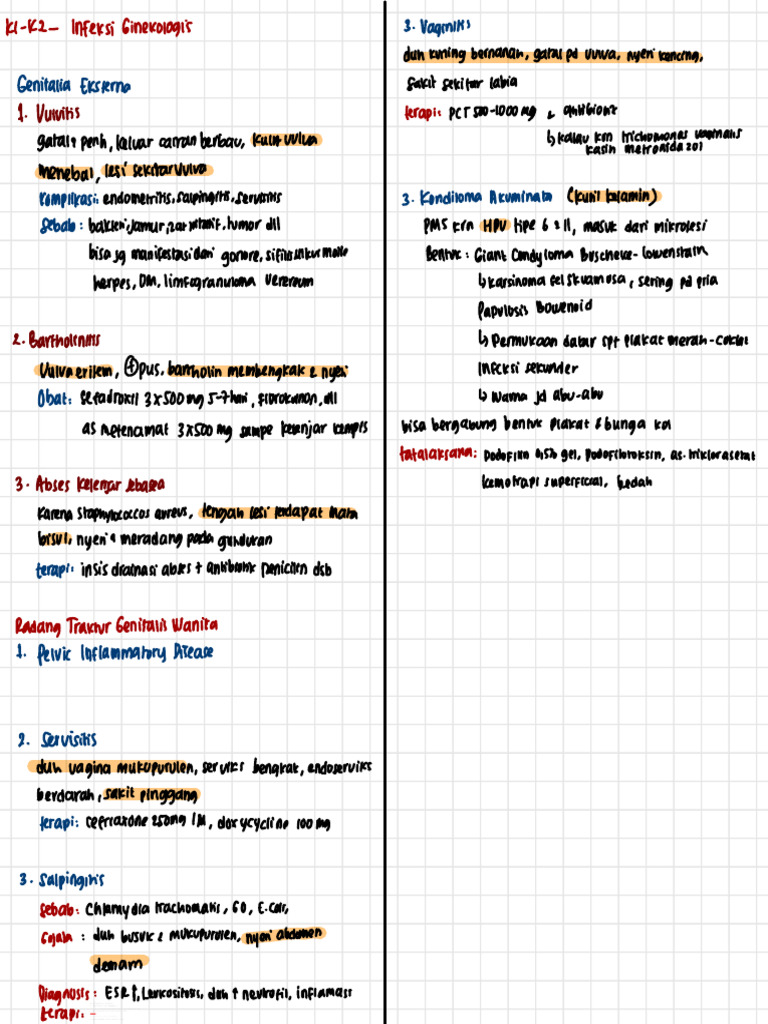 K1-K2 - Infeksi Ginekologis
Genitalia Eksterna
1. Vulvitis
gatal & perih, keluar cairan berbau, kulit vulva
menebal, lesi sekitar vulva
komplikasi: endometritis, salpingitis, servisitis
sebab: bakteri, jamur, zat iritatif, tumor dll
bisa jg manifestasi dari gonore, sifilis, ulkus mole
herpes, DM, limfogranuloma venereum
2. Bartholinitis
Vulva eritem, ⊕ pus, bartholin membengkak & nyeri
Obat: Sefadroxil 3x500 mg 5-7 hari,
as mefenamat 3x500 mg sampe kelenjar kempis
3. Abses Kelenjar sebasea
karena staphylococcus aureus, tengah lesi terdapat mata
bisul, nyeri & meradang pada gundukan
terapi: insisi drainasi abses + antibiotik penicilen dsb
Radang Traktur Genitalis Wanita
1. Pelvic Inflammatory Disease
2. Servisitis
duh vagina mukupurulen, serviks bengkat, endoserviks
berdarah, sakit pinggang
terapi: ceftriaxone 250mg IM, doxycycline 100 mg
3. Salpingitis
sebab: Chlamydia trachomatis, GO, E.Coli,
Gejala: duh busuk & mukupurulen, nyeri abdomen
demam
Diagnosis: ESR↑, Leukositosis, duh ↑ neutrofil, inflamasi
terapi: -
3. Vaginitis
duh kuning bernanah, gatal pd vulva, nyeri kencing,
sakit sekitar labia
terapi: PCT 500-1000 mg & antibiotik
↳ kalau krn trichomonas vaginalis
kasih metronidazol
3. Kondiloma Akuminata (kutil kelamin)
PMS krn HPV tipe 6 & 11, masuk dari mikrolesi
Bentuk: Giant Condyloma Buscheke-Lowenstein
↳ karsinoma sel skuamosa, sering pd pria
Papulosis Bowenoid
↳ Permukaan datar spt plakat merah-coklat
infeksi sekunder
↳ warna jd abu-abu
bisa bergabung bentuk plakat & bunga kol
tatalaksana: podofilin gel, podofilotoksin, as. trikloroasetat
kemotrapi superficial, bedah